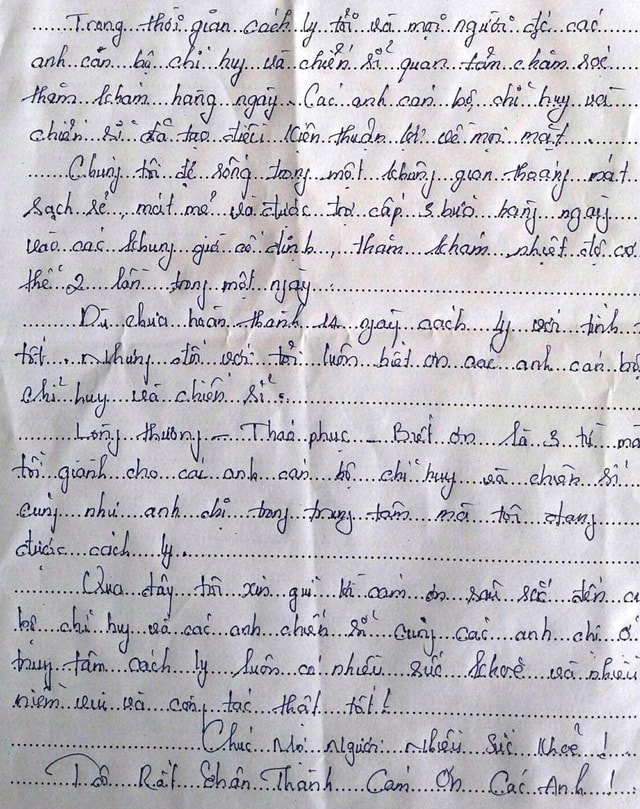 Trong thời gian cách ly tôi và mọi người đc các
anh cán bộ chỉ huy và chiến sĩ quan tâm chăm sóc
thăm khám hàng ngày. Các anh cán bộ chỉ huy và
chiến sĩ đã tạo điều kiện thuận lợi về mọi mặt.
Chúng tôi để sống trong một không gian thoáng mát
sạch sẽ, mát mẻ và được trợ cấp 3 buổi hàng ngày
vào các khung giờ cố định, thăm khám, nhiệt độ cơ
thể 2 lần trong một ngày.
Dù chưa hoàn thành 14 ngày cách ly với tình
tốt. Nhưng đối với tôi luôn biết ơn các anh cán bộ
chỉ huy và chiến sĩ.
Lòng thương - Thao phục - Biết ơn là 3 từ mà
tôi giành cho các anh cán bộ chỉ huy và chiến sĩ
cũng như anh chị trong trung tâm mà tôi đang
được cách ly.
Qua đây tôi xin gửi lời cảm ơn sâu sắc đến
bộ chỉ huy và các anh chiến sĩ cùng các anh chị ở
trung tâm cách ly luôn có nhiều sức khoẻ và nhiều
niềm vui và công tác thật tốt!
Chúc Mọi Người Nhiều Sức Khoẻ!
Tôi Rất Chân Thành Cảm Ơn Các Anh!